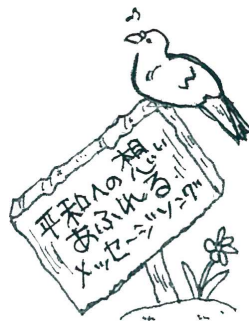 平和への想い
あふれる
メッセージソング